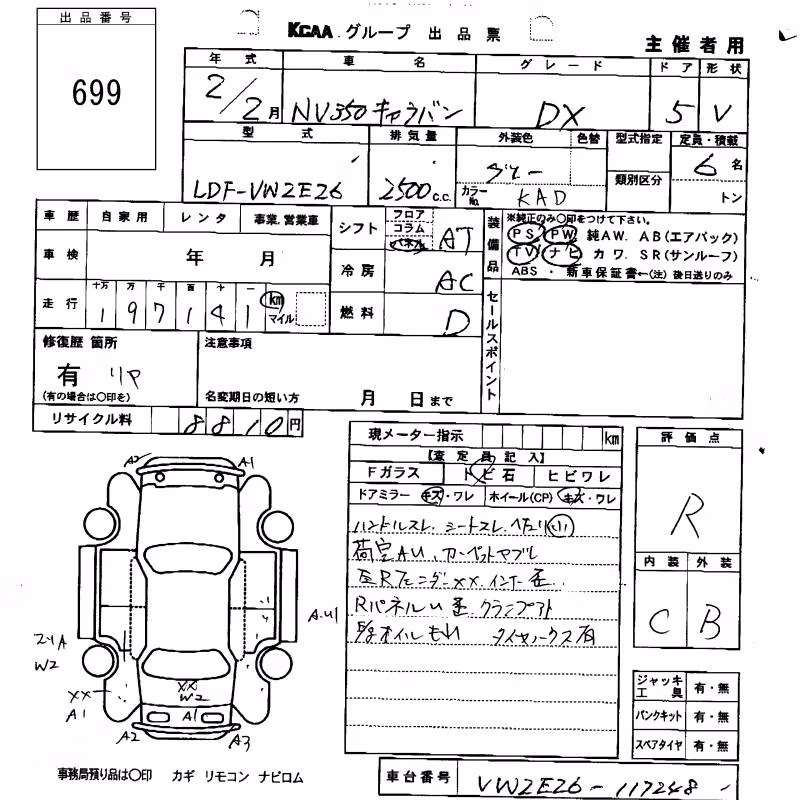 出品番号
699
KCAA グループ 出品票
主催者用
年式 車名 グレード ドア 形状
2/2月 NV350キャラバン DX 5 V
型式 排気量 外装色 色替 型式指定 定員・積載
LDF-VW2E26 2500c.c. グレー 類別区分 6名
カラーNo. KAD トン
車歴 自家用 レンタ 事業.営業車
車検 年 月
走行 十万 万 千 百 十 一
1 9 7 1 4 1 km マイル
シフト フロア コラム パネル AT
冷房 AC
燃料 D
装備品
※純正のみ○印をつけて下さい。
PS PW 純AW. AB(エアバック)
TV ナビ カワ. SR(サンルーフ)
ABS ・ 新車保証書←(注) 後日送りのみ
セールスポイント
修復歴 箇所 注意事項
有 リヤ
(有の場合は○印を) 名変期日の短い方 月 日まで
リサイクル料 8 8 1 0 円
現メーター指示 km
【査定員記入】
Fガラス トビ石 ヒビワレ
ドアミラー キズ・ワレ ホイール(CP) キズ・ワレ
ハンドルスレ シートスレ ヘタリ 小
荷室AU、カーペットヤブレ
左Rフェンダー××、インナー歪
RパネルU歪 クランプアト
E/gオイルもれ タイヤノーズ有
評価点
R
内装 外装
C B
ジャッキ工具 有・無
パンクキット 有・無
スペアタイヤ 有・無
A2 A1
A.U1
W2
XX
A1
XX
W2
A1
A2 A3
事務局預り品は○印 カギ リモコン ナビロム
車台番号 VW2E26-117248